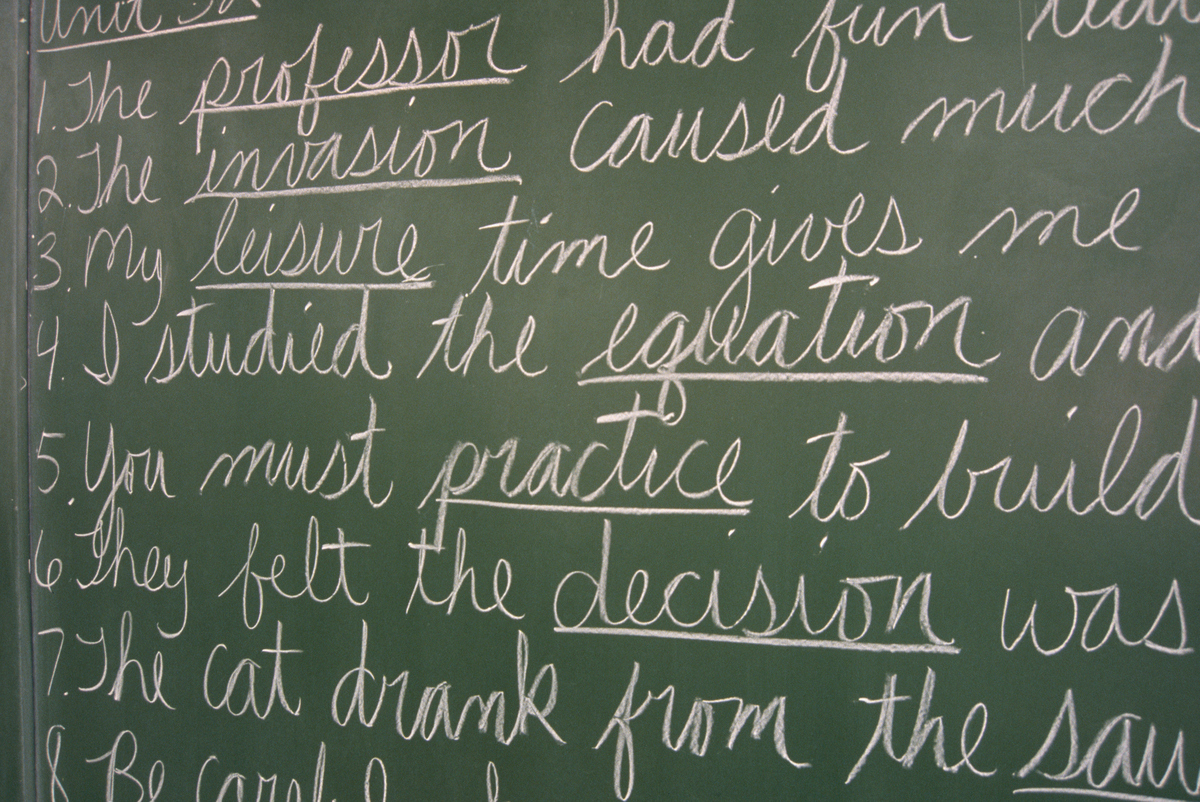 Unit
1. The professor had fun
2. The invasion caused much
3. My leisure time gives me
4. I studied the equation and
5. You must practice to build
6 They felt the decision was
7. The cat drank from the sau
8. Be